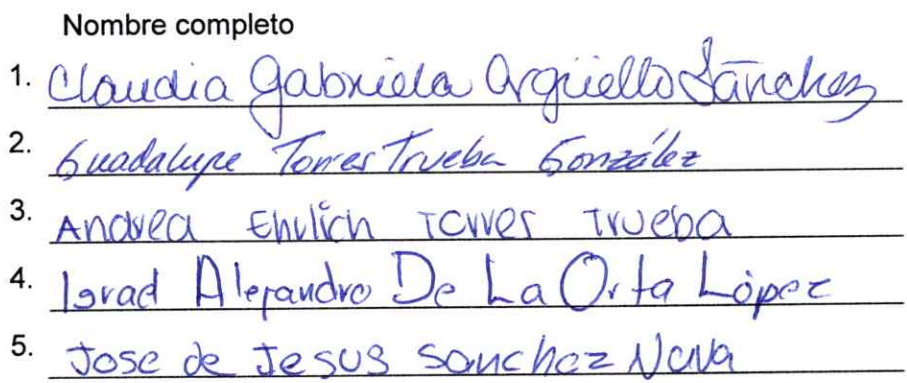 Nombre completo
1. Claudia Gabriela Argüello Sánchez
2. Guadalupe Torres Trueba González
3. Andrea Ehrlich Torres Trueba
4. Israd Alejandro De La Orta López
5. Jose de Jesus Sanchez Nava